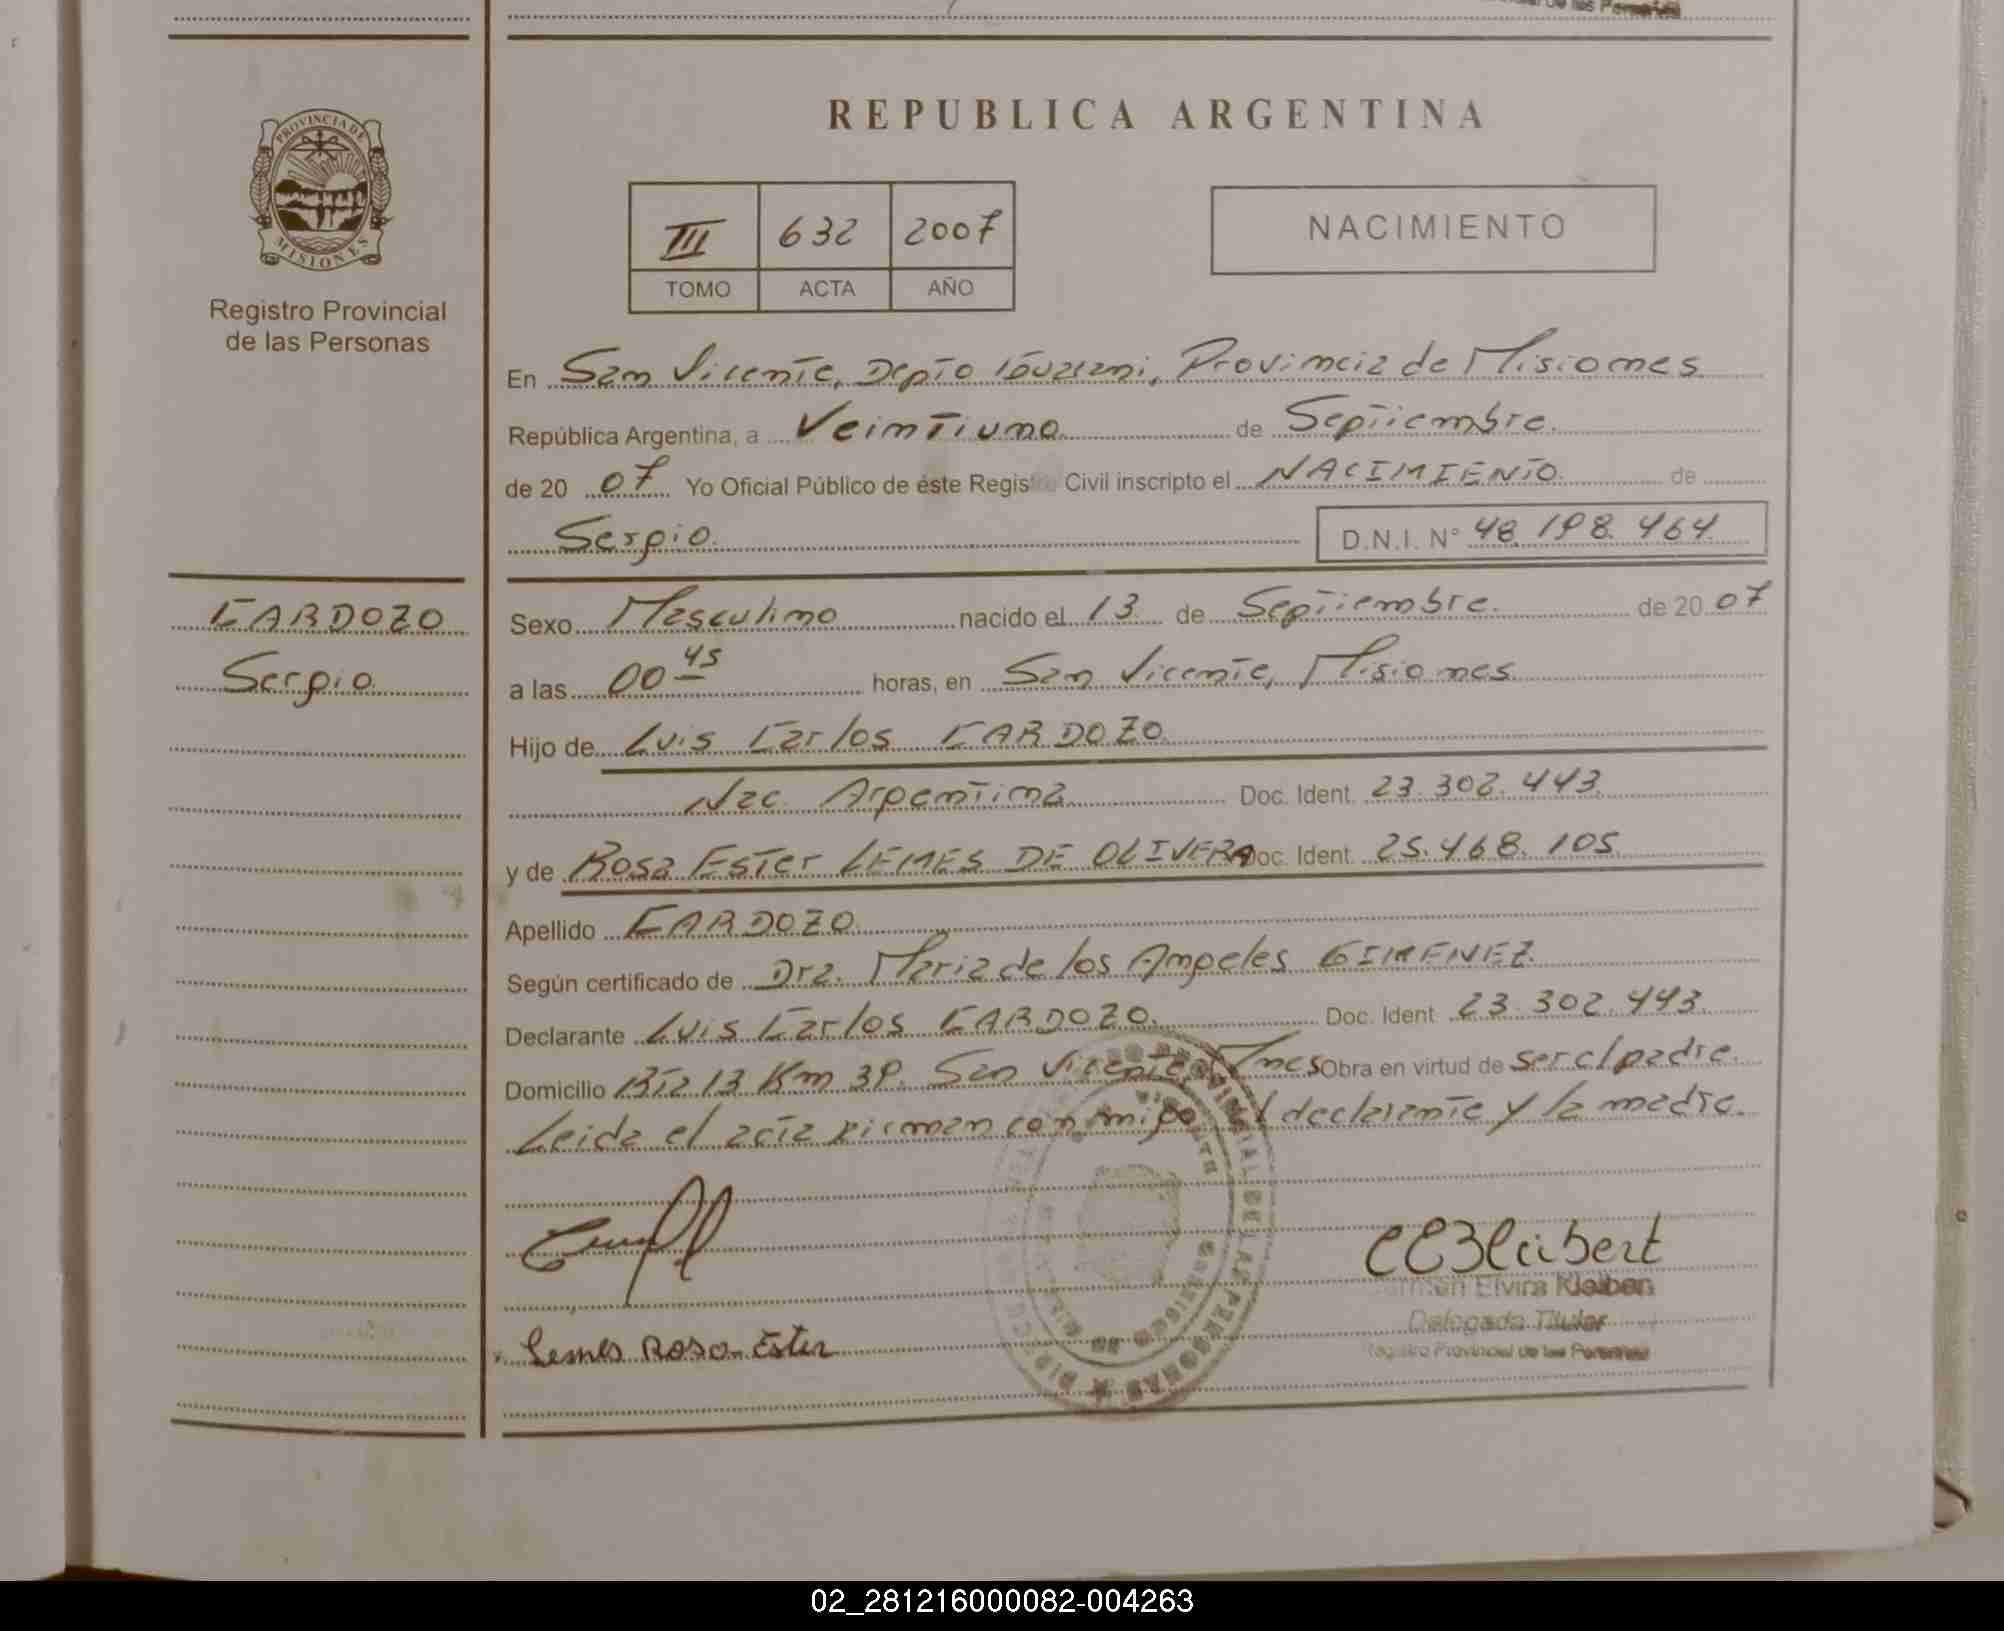 de las Personas
PROVINCIA DE
MISIONES
Registro Provincial
de las Personas
REPUBLICA ARGENTINA
III 632 2007
TOMO ACTA AÑO
NACIMIENTO
En San Vicente, Depto Guarani, Provincia de Misiones
República Argentina, a Veintiuno de Septiembre.
de 20 07 Yo Oficial Público de éste Registro Civil inscripto el NACIMIENTO. de
Sergio. D.N.I. N° 48.198.464.
CARDOZO
Sergio.
Sexo Masculino nacido el 13 de Septiembre. de 20 07
a las 00 45 horas, en San Vicente, Misiones
Hijo de Luis Carlos CARDOZO.
Nac. Argentina Doc. Ident. 23.302.443.
y de Rosa Ester LEMES DE OLIVERA Doc. Ident. 25.468.105
Apellido CARDOZO.
Según certificado de Dra. Maria de los Angeles GIMENEZ.
Declarante Luis Carlos CARDOZO. Doc. Ident. 23.302.443.
Domicilio Rta 13 Km 39. San Vicente, Mnes Obra en virtud de ser el padre.
Leida el acta firman conmigo el declarante y la madre.
Lemes Rosa Ester
Elvira Kleibert
Delegada Titular
Registro Provincial de las Personas
02_281216000082-004263